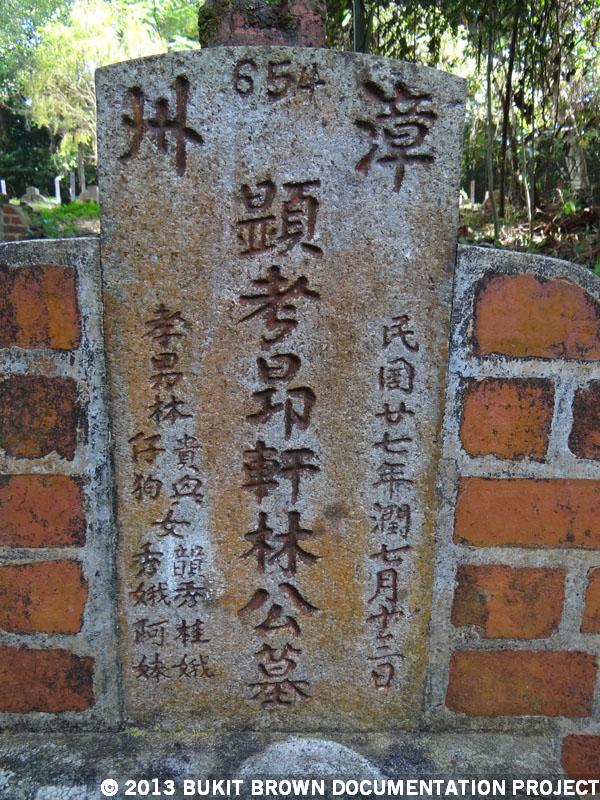 654
漳州
民国廿七年潤七月廿二日
顯考昻軒林公墓
孝男林貴血仔狗女韻秀桂娥秀娥阿妹
© 2013 BUKIT BROWN DOCUMENTATION PROJECT